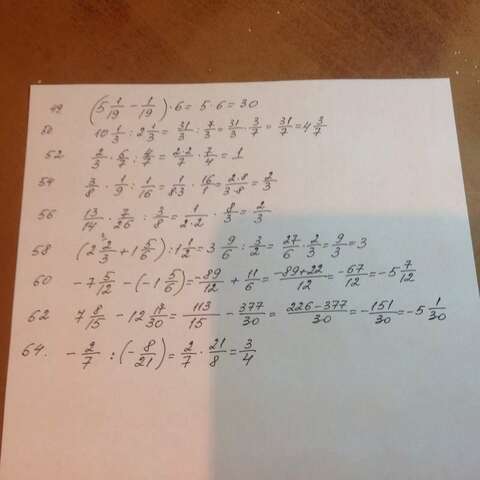 49 (5 1/19 - 1/19) · 6 = 5 · 6 = 30
50 10 1/3 : 2 1/3 = 31/3 : 7/3 = 31/3 · 3/7 = 31/7 = 4 3/7
52 2/3 · 6/7 : 4/7 = 2·2/7 · 7/4 = 1
54 3/8 · 1/9 : 1/16 = 1/8·3 · 16/1 = 2·8/3·8 = 2/3
56 13/14 · 7/26 : 3/8 = 1/2·2 · 8/3 = 2/3
58 (2 2/3 + 1 5/6) : 1 1/2 = 3 9/6 : 3/2 = 27/6 · 2/3 = 9/3 = 3
60 -7 5/12 - (-1 5/6) = -89/12 + 11/6 = -89+22/12 = -67/12 = -5 7/12
62 7 8/15 - 12 17/30 = 113/15 - 377/30 = 226-377/30 = -151/30 = -5 1/30
64. -2/7 : (-8/21) = 2/7 · 21/8 = 3/4